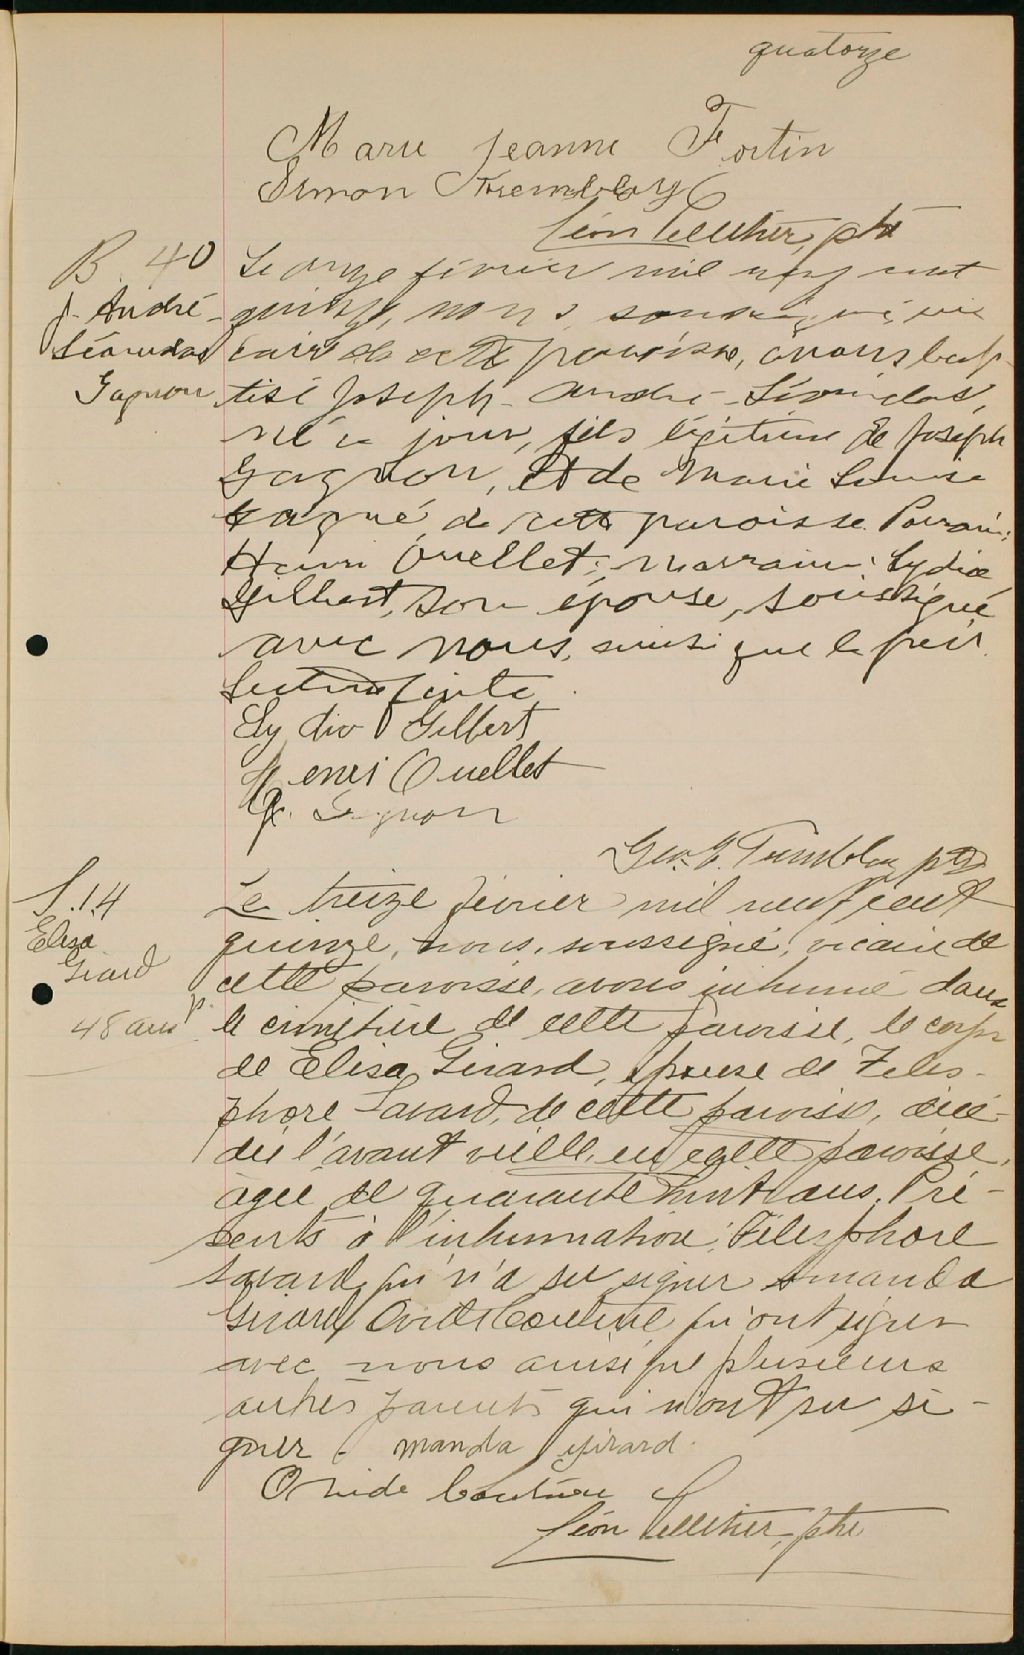 quatorze
Marie Jeanne Fortin
Simon Tremblay
Léon Pelletier, ptre
B. 40
J. André-
Léonidas
Gagnon
Le onze février mil neuf cent
quinze, nous, soussigné, vi
caire de cette paroisse, avons bap-
tisé Joseph-André-Léonidas,
né ce jour, fils légitime de Joseph
Gagnon, et de Marie Louise
Gagné, de cette paroisse. Parrain:
Henri Ouellet; marraine: Lydia
Gilbert, son épouse, soussigné
avec nous, ainsi que le père.
Lecture faite.
Lydia Gilbert
Henri Ouellet
J. Gagnon
Geo. Tremblay ptre
S. 14
Elisa
Girard
48 ans
Le treize février mil neuf cent
quinze, nous, soussigné, vicaire de
cette paroisse, avons inhumé dans
le cimetière de cette paroisse, le corps
de Elisa Girard, épouse de Téles-
phore Savard, de cette paroisse, décé-
dée l'avant veille, en cette paroisse,
agée de quarante huit ans. Pré-
sents à l'inhumation: Télesphore
Savard, qui n'a su signer Amanda
Girard, Ovide Couture qui ont signé
avec nous ainsi que plusieurs
autres parents qui n'ont su si-
gner. manda girard.
Ovide Couture
Léon Pelletier, ptre